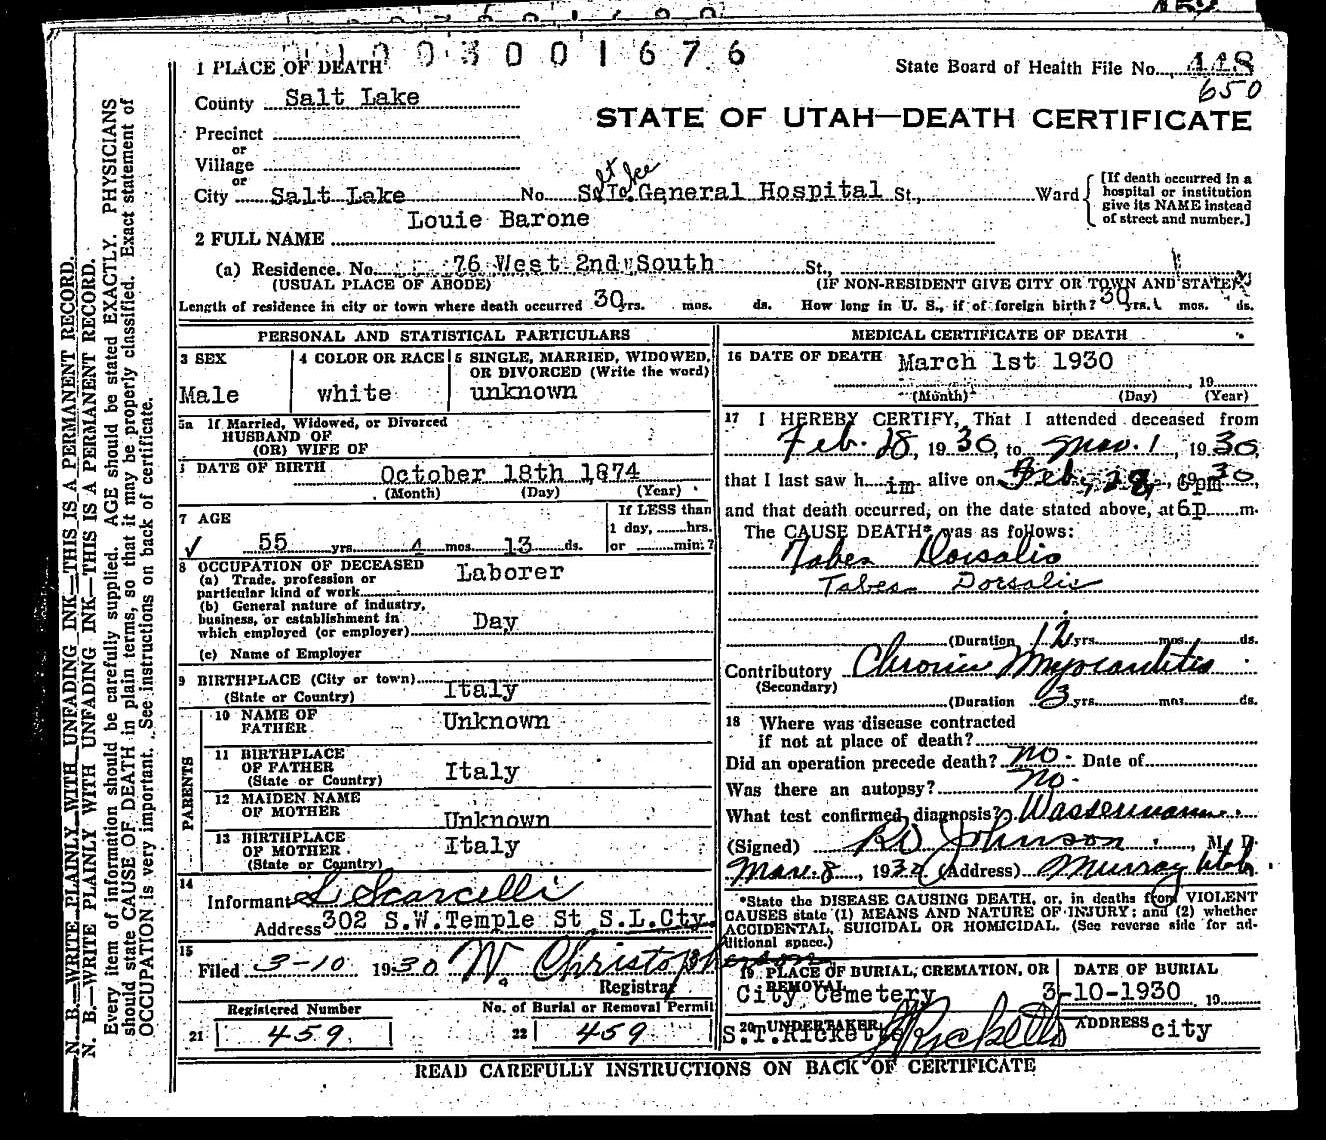 1003001676
1 PLACE OF DEATH
State Board of Health File No. 448
650
County Salt Lake
STATE OF UTAH—DEATH CERTIFICATE
Precinct
or
Village
or
City Salt Lake No. Salt Lake General Hospital St., Ward
[If death occurred in a hospital or institution give its NAME instead of street and number.]
Louie Barone
2 FULL NAME
(a) Residence. No. 76 West 2nd South St.,
(USUAL PLACE OF ABODE) (IF NON-RESIDENT GIVE CITY OR TOWN AND STATE)
Length of residence in city or town where death occurred 30 yrs. mos. ds. How long in U. S., if of foreign birth? 30 yrs. mos. ds.
PERSONAL AND STATISTICAL PARTICULARS
3 SEX
Male
4 COLOR OR RACE
white
5 SINGLE, MARRIED, WIDOWED, OR DIVORCED (Write the word)
unknown
5a If Married, Widowed, or Divorced
HUSBAND OF
(OR) WIFE OF
DATE OF BIRTH October 18th 1874
(Month) (Day) (Year)
7 AGE
55 yrs. 4 mos. 13 ds.
If LESS than
1 day, hrs.
or min.?
8 OCCUPATION OF DECEASED
(a) Trade, profession or
particular kind of work Laborer
(b) General nature of industry,
business, or establishment in
which employed (or employer) Day
(c) Name of Employer
9 BIRTHPLACE (City or town)
(State or Country) Italy
PARENTS
10 NAME OF
FATHER Unknown
11 BIRTHPLACE
OF FATHER Italy
(State or Country)
12 MAIDEN NAME
OF MOTHER Unknown
13 BIRTHPLACE
OF MOTHER Italy
(State or Country)
14
Informant S Scarcelli
Address 302 S.W.Temple St S.L.Cty.
15
Filed 3-10 1930 W. Christopherson
Registrar
Registered Number
21 459
No. of Burial or Removal Permit
22 459
MEDICAL CERTIFICATE OF DEATH
16 DATE OF DEATH March 1st 1930
, 19
(Month) (Day) (Year)
17 I HEREBY CERTIFY, That I attended deceased from
Feb. 28, 1930, to Mar. 1, 1930,
that I last saw him alive on Feb, 28, 1930,
and that death occurred, on the date stated above, at 6p m.
The CAUSE DEATH* was as follows:
Tabes Dorsalis
Tabes Dorsalis
(Duration 12 yrs. mos. ds.
Contributory Chronic Myocarditis
(Secondary)
(Duration 3 yrs. mos. ds.
18 Where was disease contracted
if not at place of death?
Did an operation precede death? no Date of
Was there an autopsy? no.
What test confirmed diagnosis? Wassermann
(Signed) RD Johnson, M. D.
Mar. 8, 1930 (Address) Murray Utah
*State the DISEASE CAUSING DEATH, or, in deaths from VIOLENT
CAUSES state (1) MEANS AND NATURE OF INJURY; and (2) whether
ACCIDENTAL, SUICIDAL OR HOMICIDAL. (See reverse side for additional space.)
19 PLACE OF BURIAL, CREMATION, OR
REMOVAL
City Cemetery
DATE OF BURIAL
3-10-1930 19
20 UNDERTAKER
S.T.Ricketts
ADDRESS city
READ CAREFULLY INSTRUCTIONS ON BACK OF CERTIFICATE
N. B.—WRITE PLAINLY WITH UNFADING INK—THIS IS A PERMANENT RECORD.
N. B.—WRITE PLAINLY WITH UNFADING INK—THIS IS A PERMANENT RECORD.
Every item of information should be carefully supplied. AGE should be stated EXACTLY. PHYSICIANS
should state CAUSE OF DEATH in plain terms, so that it may be properly classified. Exact statement of
OCCUPATION is very important. See instructions on back of certificate.